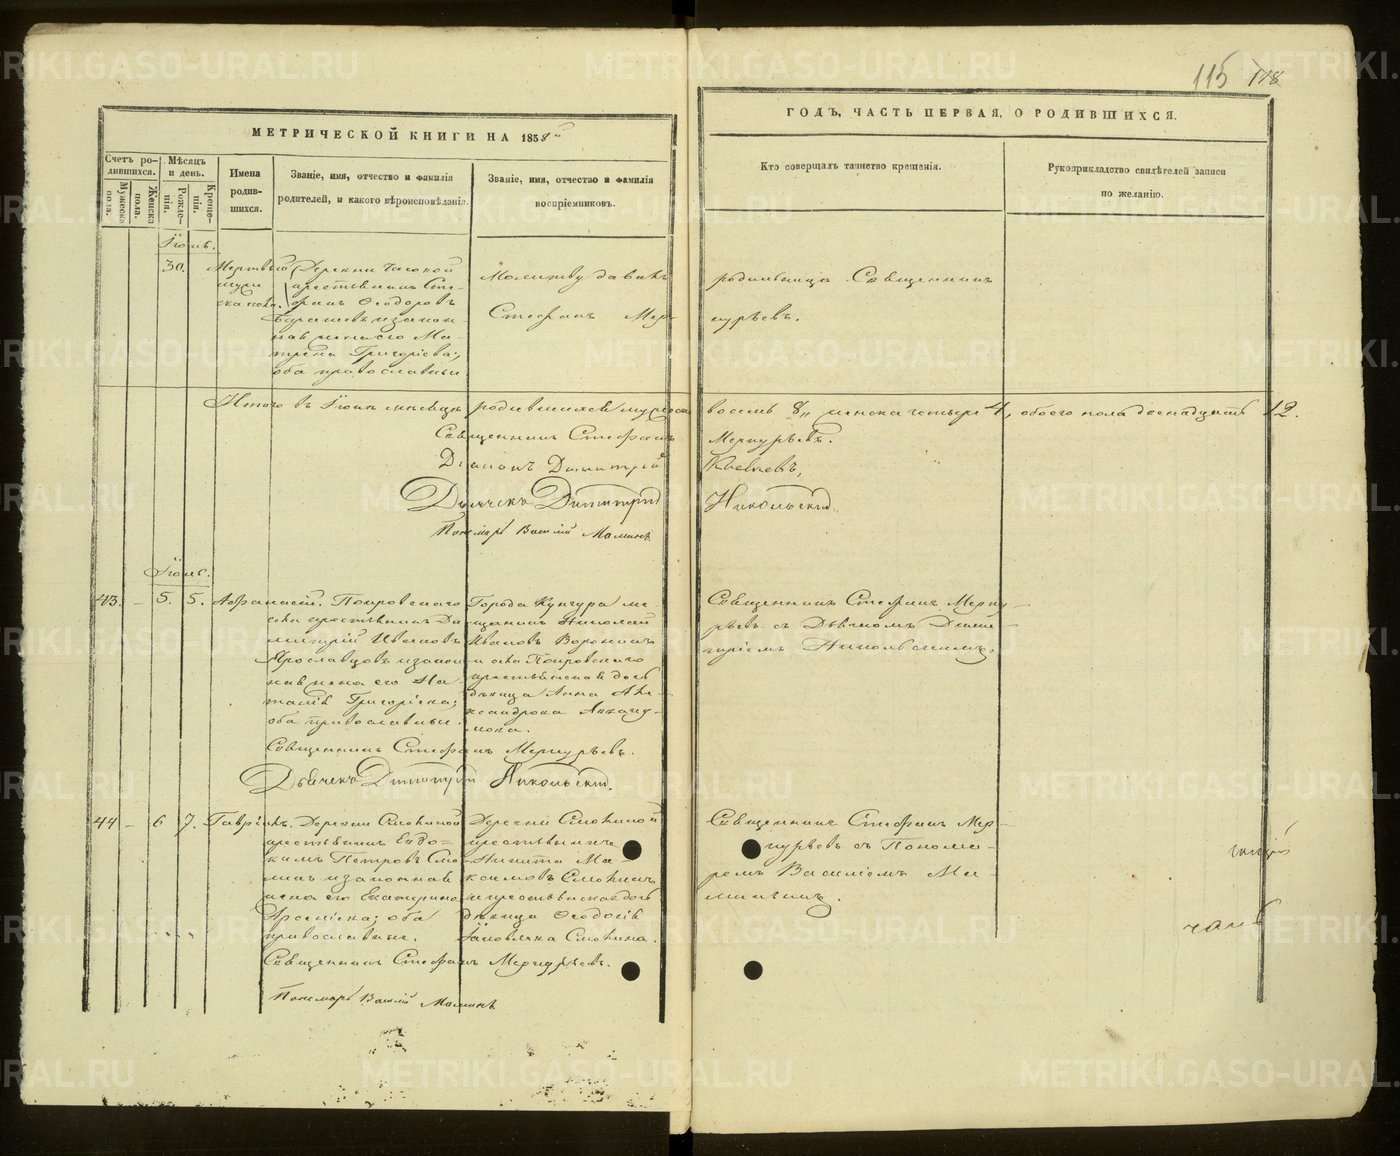 115 118
МЕТРИЧЕСКОЙ КНИГИ НА 1858й
ГОДЪ, ЧАСТЬ ПЕРВАЯ, О РОДИВШИХСЯ.
Счетъ ро-
дившихся.
Мѣсяцъ
и день.
Мужеска
пола.
Женска
пола.
Рожде-
нія.
Креще-
нія.
Имена
родив-
шихся.
Званіе, имя, отчество и фамилія
родителей, и какого вѣроисповѣданія.
Званіе, имя, отчество и фамилія
воспріемниковъ.
Кто совершалъ таинство крещенія.
Рукоприкладство свидѣтелей записи
по желанію.
30.
Мертвый
муже
ска пола.
Деревни Часовой
крестьянинъ Сте-
фанъ Ѳеодоровъ
и закон-
ная жена его Ма-
трена Григорьева;
оба православные
Молитву давалъ родильницѣ Священникъ
Стефанъ Меркурьевъ.
Итого въ Іюнѣ мѣсяцѣ родившихся мужеска восемь 8, женска четыре 4, обоего пола двенадцать 12.
Священникъ Стефанъ Меркурьевъ.
Діаконъ Димитрій
Дьячекъ Димитрій Никольскій
Пономарь Василій Маминъ.
Іюль.
43. – 5. 5. Афанасій.
Покровскаго
села крестьянинъ Ди
митрій Ивановъ
Ярославцовъ и закон
ная жена его На
талія Григорьева;
оба православные.
Города Кунгура ме
щанинъ Николай
Ивановъ Воронинъ
и села Покровскаго
крестьянская дочь
дѣвица Анна Але
ксандрова
Священникъ Стефанъ Мерку-
рьевъ съ Дьячкомъ Дими-
тріемъ Никольскимъ.
Священникъ Стефанъ Меркурьевъ.
Дьячекъ Димитрій Никольскій.
44 – 6 7. Гавріилъ.
Деревни Смокиной
крестьянинъ Евдо-
кимъ Петровъ Смо
кинъ и законная
жена его Екатерина
Арсеніева; оба
православные.
Деревни Смокиной
крестьянинъ
Никита Ма-
ксимовъ Смокинъ
и крестьянская дочь
дѣвица Ѳеодосія
Іаковлева Смокина.
Священникъ Стефанъ Мер-
курьевъ съ Понома-
ремъ Василіемъ Ма-
минымъ.
Священникъ Стефанъ Меркурьевъ.
Пономарь Василій Маминъ
METRIKI.GASO-URAL.RU